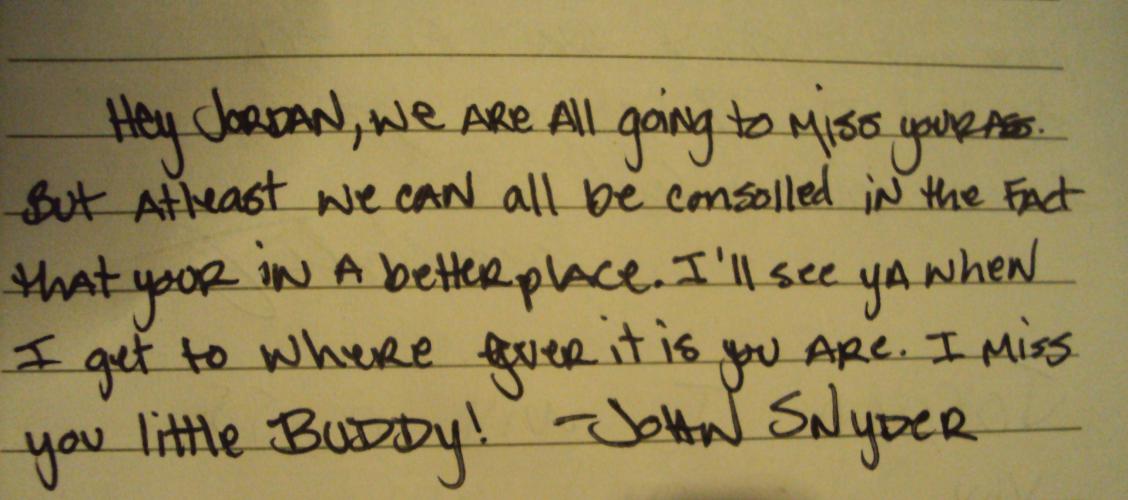 Hey JORDAN, we ARE All going to Miss your Ass.
But Atleast we can all be consolled in the Fact
that your in A better place. I'll see yA when
I get to where ever it is you Are. I Miss
you little BUDDy! -JOHN SNyDER